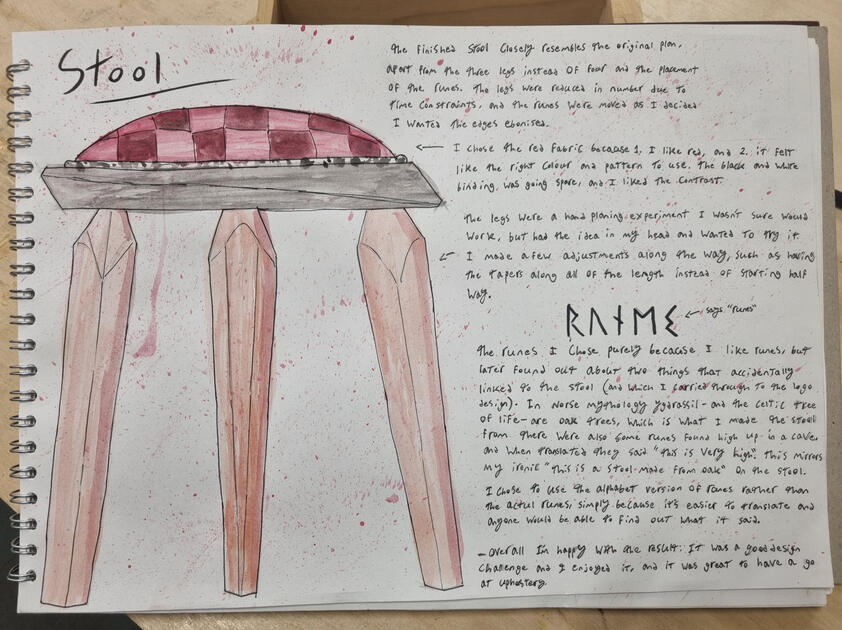 Stool
the finished stool closely resembles the original plan,
apart from the three legs instead of four and the placement
of the runes. The legs were reduced in number due to
time constraints, and the runes were moved as I decided
I wanted the edges ebonised.
I chose the red fabric because 1, I like red, and 2. it felt
like the right colour and pattern to use. The black and white
binding was going spare, and I liked the contrast.
the legs were a hand planing experiment I wasn't sure would
work, but had the idea in my head and wanted to try it
I made a few adjustments along the way, such as having
the tapers along all of the length instead of starting half
way.
says "runes"
the runes I chose purely because I like runes, but
later found out about two things that accidentally
linked to the stool (and which I carried through to the logo
design). In Norse mythology ygdrassil - and the celtic tree
of life - are oak trees, which is what I made the stool
from. there were also some runes found high up in a cave,
and when translated they said "this is very high". this mirrors
my ironic "this is a stool made from oak" on the stool.
I chose to use the alphabet version of runes rather than
the actul runes, simply because it's easier to translate and
anyone would be able to find out what it said.
- overall I'm happy with the result. It was a good design
challenge and I enjoyed it, and it was great to have a go
at upholstery.